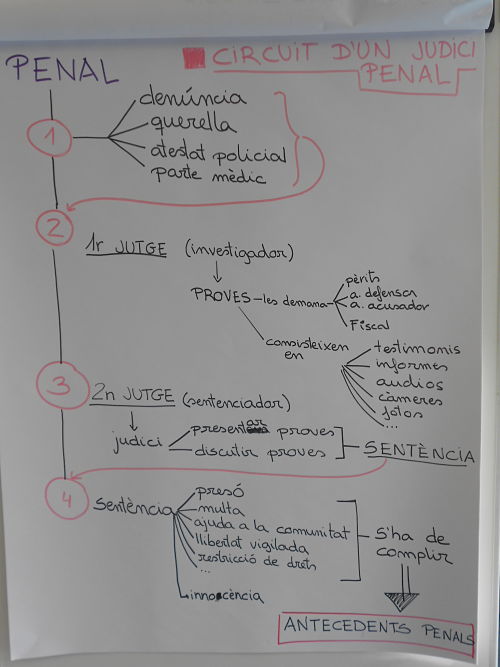 PENAL
CIRCUIT D'UN JUDICI
PENAL
1
denúncia
querella
atestat policial
parte mèdic
2
1r JUTGE (investigador)
PROVES - les demana
pèrits
a. defensor
a. acusador
Fiscal
consisteixen
en
testimonis
informes
audios
càmeres
fotos
...
3
2n JUTGE (sentenciador)
judici
presentar proves
discutir proves
SENTÈNCIA
4
Sentència
presó
multa
ajuda a la comunitat
llibertat vigilada
restricció de drets
...
innocència
S'ha de
complir
ANTECEDENTS PENALS